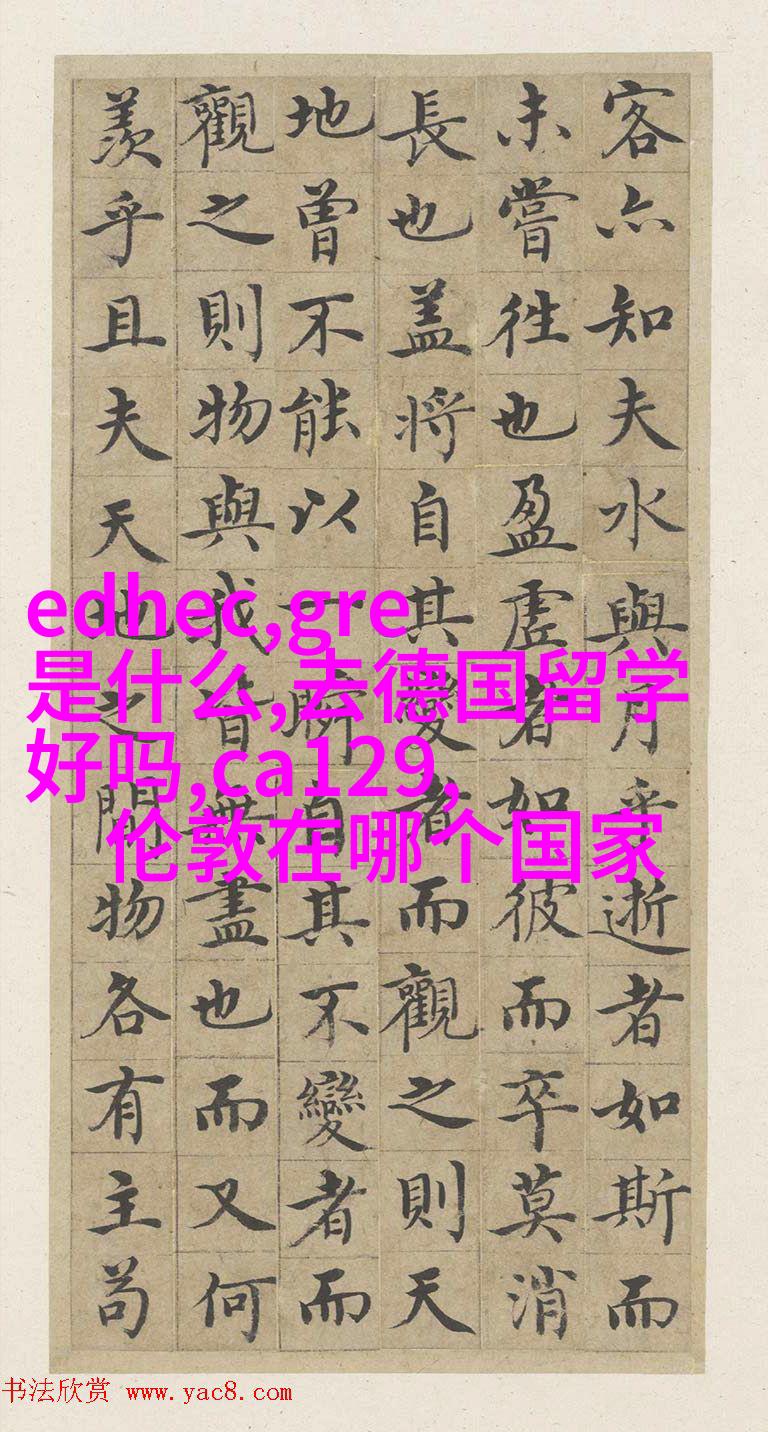 客亦知夫水與月乎逝者如斯而
未嘗往也盈虛者如彼而卒莫消
長也盖將自其變者而觀之則天
地曾不能以一瞬自其不變者而
觀之則物與我皆無盡也而又何
羨乎且夫天地之間物各有主苟
edhec,gre
是什么,去德国留学
好吗,ca129,
伦敦在哪个国家
书法欣赏 www.yac8.com